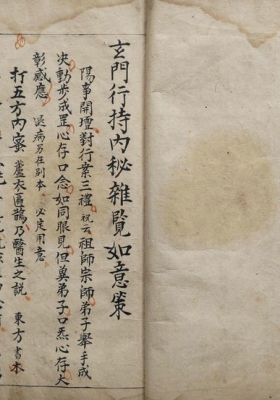 玄門行持內秘雜覽如意策
陽事開壇對行案三禮祝云祖師宗師弟子舉手成
决動步成罡心存口念如同眼見但奠弟子口悉心存大
彰感應 退病另在別本 必定用意
打五方內密 蘆衣匾鵲乃醫生之説 東方書木